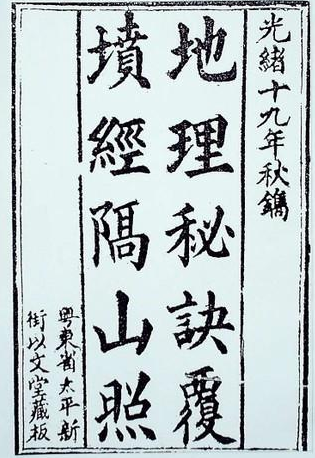 光緒十九年秋鐫
地理秘訣覆
墳經隔山照
粤東省太平新
街以文堂藏板